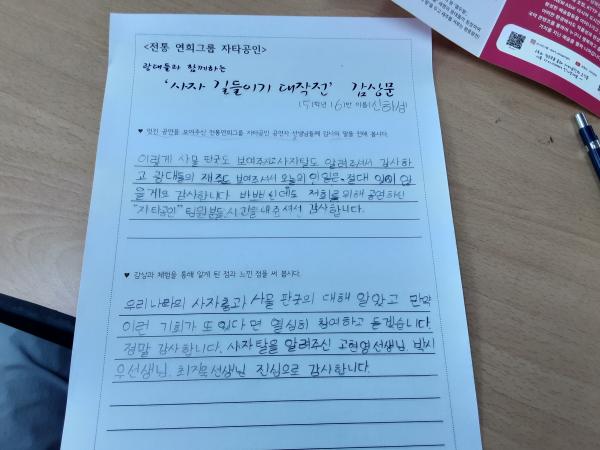 <전통 연희그룹 자타공인>
광대들과 함께하는
'사자 길들이기 대작전' 감상문
(5)학년 (6)반 이름(신하성)
♥ 멋진 공연을 보여주신 전통연희그룹 자타공인 공연자 선생님들께 감사의 말을 전해 봅시다.
이렇게 사물 판굿도 보여주시고 사자탈도 알려주셔서 감사하
고 광대들의 재주도 보여주셔서 오늘의 이 일은 절대 잊이 않
을게요 감사합니다 바쁘신데도 저희를 위해 공연하신
"자타공인" 팀원분들 시간을 내주셔서 감사합니다.
♥ 감상과 체험을 통해 알게 된 점과 느낀 점을 써 봅시다.
우리나라의 사자춤과 사물 판굿의 대해 알았고 만약
이런 기회가 또 있다면 열심히 참여하고 듣겠습니다.
정말 감사합니다. 사자탈을 알려주신 고현영선생님, 박시
우선생님, 최지욱선생님 진심으로 감사합니다.